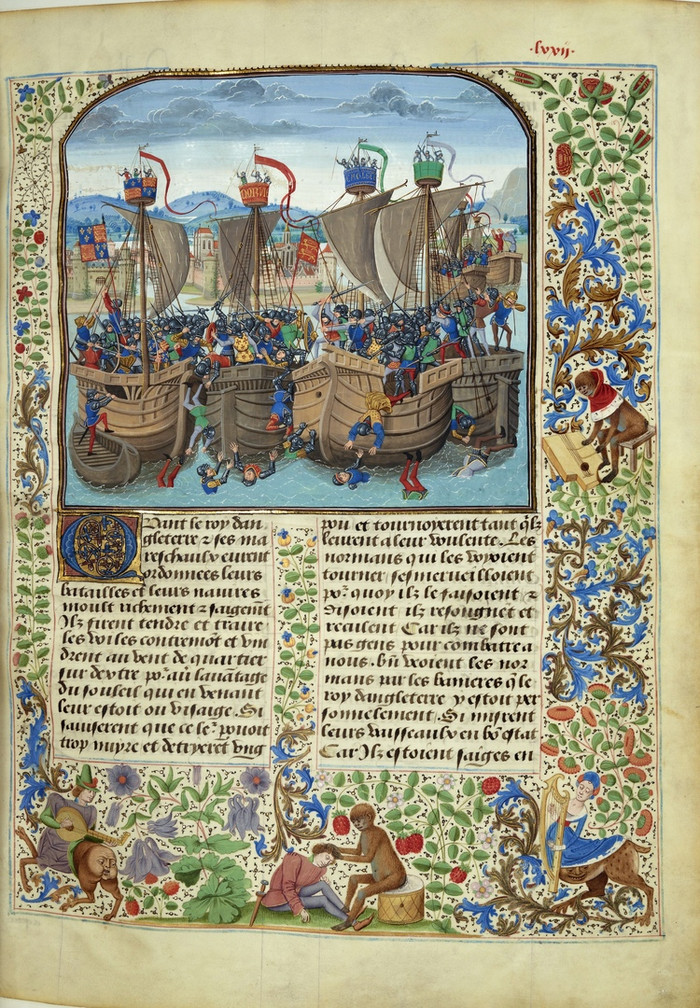 .lxxij.
Quant le roy dan
gleterre ⁊ ses ma
reschaulx eurent
ordonnees leurs
batailles et leurs nauires
moult richement ⁊ saigemt
Ilz firent tendre et traire
les voiles contremōt et vin
drent au vent de quartier
sur dextre por auoir lauātage
du souleil qui en venant
leur estoit ou visaige. Si
sauiserent que ce ler pouoit
trop nuyre et detryerēt vng
pou et tournoyerent tant qlz
leurent a leur voulente. Les
normans qui les veoyoient
tourner sesmerueilloient
por quoy ilz le faisoient ⁊
disoient ilz resongnet et
reculent Car ilz ne sont
pas gens pour combatre a
nous. bn̄ veoient les nor
mans par les banieres q̄ le
roy dangleterre y estoit per
sonnelement. Si misrent
leurs vaisseaulx en bō estat
Car Ilz estoient saiges en